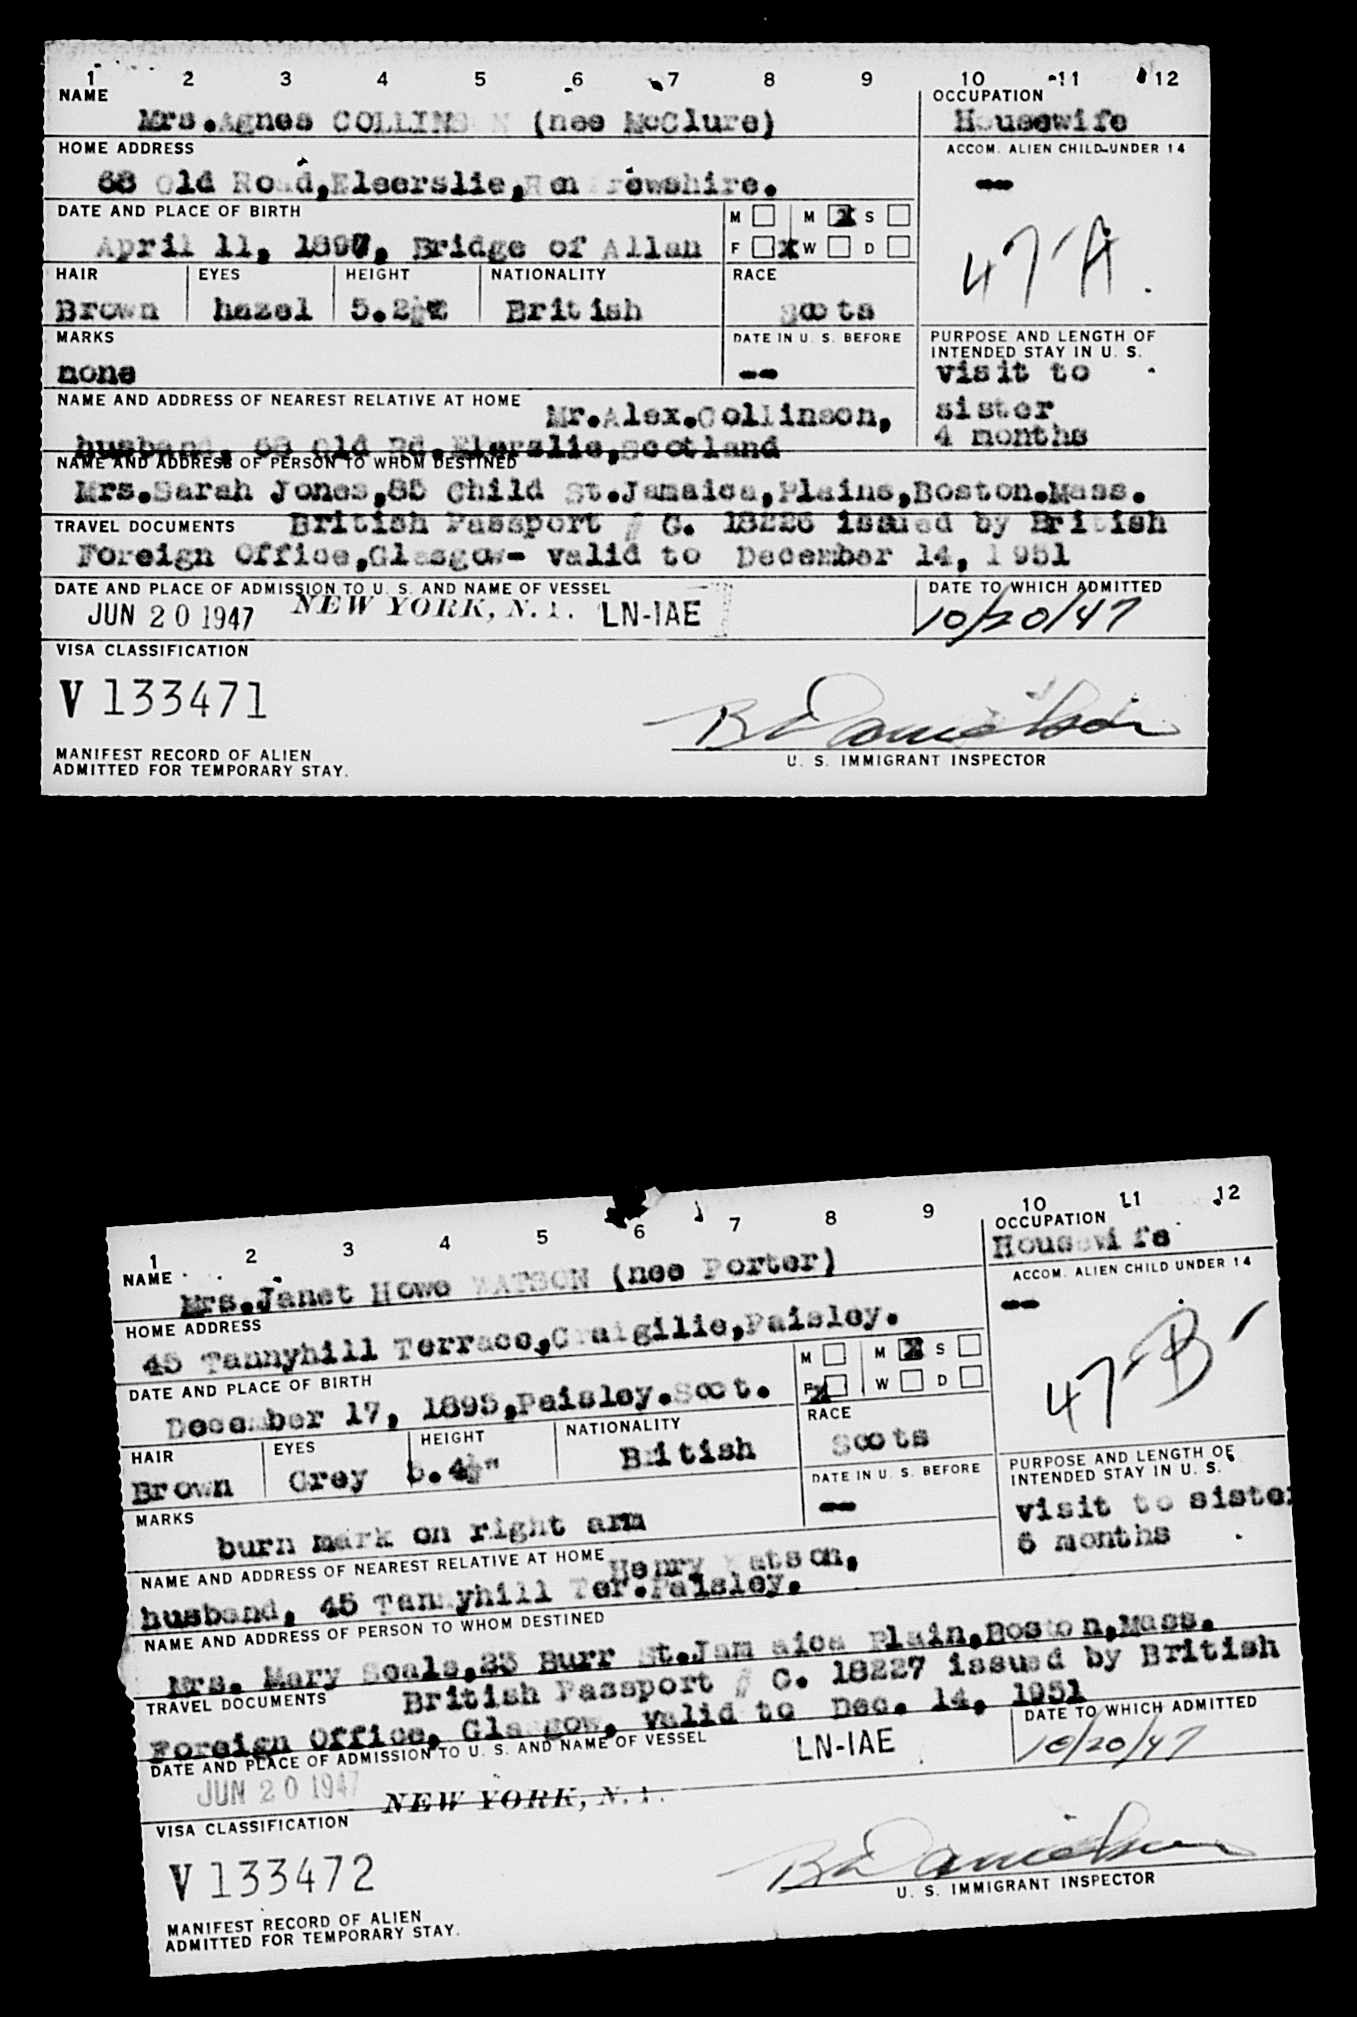 1 2 3 4 5 6 7 8 9 10 11 12
NAME
Mrs.Agnes COLLINS N (nee McClure)
OCCUPATION
Housewife
HOME ADDRESS
68 Old Road,Elserslie,Renfrewshire.
ACCOM. ALIEN CHILD UNDER 14
--
DATE AND PLACE OF BIRTH
April 11, 1897, Bridge of Allan
M M X S
F X W D
47-A
HAIR EYES HEIGHT NATIONALITY RACE
Brown hazel 5.2½ British Scots
MARKS
none
DATE IN U. S. BEFORE
--
PURPOSE AND LENGTH OF
INTENDED STAY IN U. S.
visit to
sister
4 months
NAME AND ADDRESS OF NEAREST RELATIVE AT HOME Mr.Alex.Collinson,
husband, 68 Old Rd.Elerslie,Scotland
NAME AND ADDRESS OF PERSON TO WHOM DESTINED
Mrs.Sarah Jones,85 Child St.Jamaica,Plains,Boston.Mass.
TRAVEL DOCUMENTS British Passport # C. 18226 issued by British
Foreign Office,Glasgow- valid to December 14, 1951
DATE AND PLACE OF ADMISSION TO U. S. AND NAME OF VESSEL
JUN 20 1947 NEW YORK, N.Y. LN-IAE
DATE TO WHICH ADMITTED
10/20/47
VISA CLASSIFICATION
V 133471
B Danielson
U. S. IMMIGRANT INSPECTOR
MANIFEST RECORD OF ALIEN
ADMITTED FOR TEMPORARY STAY.
1 2 3 4 5 6 7 8 9 10 11 12
NAME
Mrs.Janet Howe WATSON (nee Porter)
OCCUPATION
Housewife
HOME ADDRESS
45 Tannyhill Terrace,Craigilie,Paisley.
ACCOM. ALIEN CHILD UNDER 14
--
DATE AND PLACE OF BIRTH
December 17, 1895,Paisley.Scot.
M M X S
F X W D
47-B
HAIR EYES HEIGHT NATIONALITY RACE
Brown Grey 5.4½" British Scots
MARKS
burn mark on right arm
DATE IN U. S. BEFORE
--
PURPOSE AND LENGTH OF
INTENDED STAY IN U. S.
visit to sister
6 months
NAME AND ADDRESS OF NEAREST RELATIVE AT HOME Henry Watson,
husband, 45 Tannyhill Ter.Paisley.
NAME AND ADDRESS OF PERSON TO WHOM DESTINED
Mrs. Mary Seals,23 Burr St.Jamaica Plain,Boston,Mass.
TRAVEL DOCUMENTS British Passport # C. 18227 issued by British
Foreign Office, Glasgow, valid to Dec. 14, 1951
DATE AND PLACE OF ADMISSION TO U. S. AND NAME OF VESSEL
JUN 20 1947 NEW YORK, N.Y. LN-IAE
DATE TO WHICH ADMITTED
10/20/47
VISA CLASSIFICATION
V 133472
B Danielson
U. S. IMMIGRANT INSPECTOR
MANIFEST RECORD OF ALIEN
ADMITTED FOR TEMPORARY STAY.